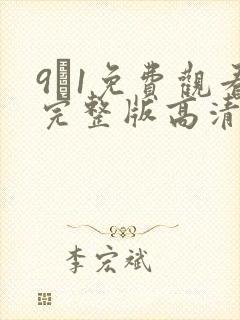 9�1免費觀看
完整版高清
李宏斌